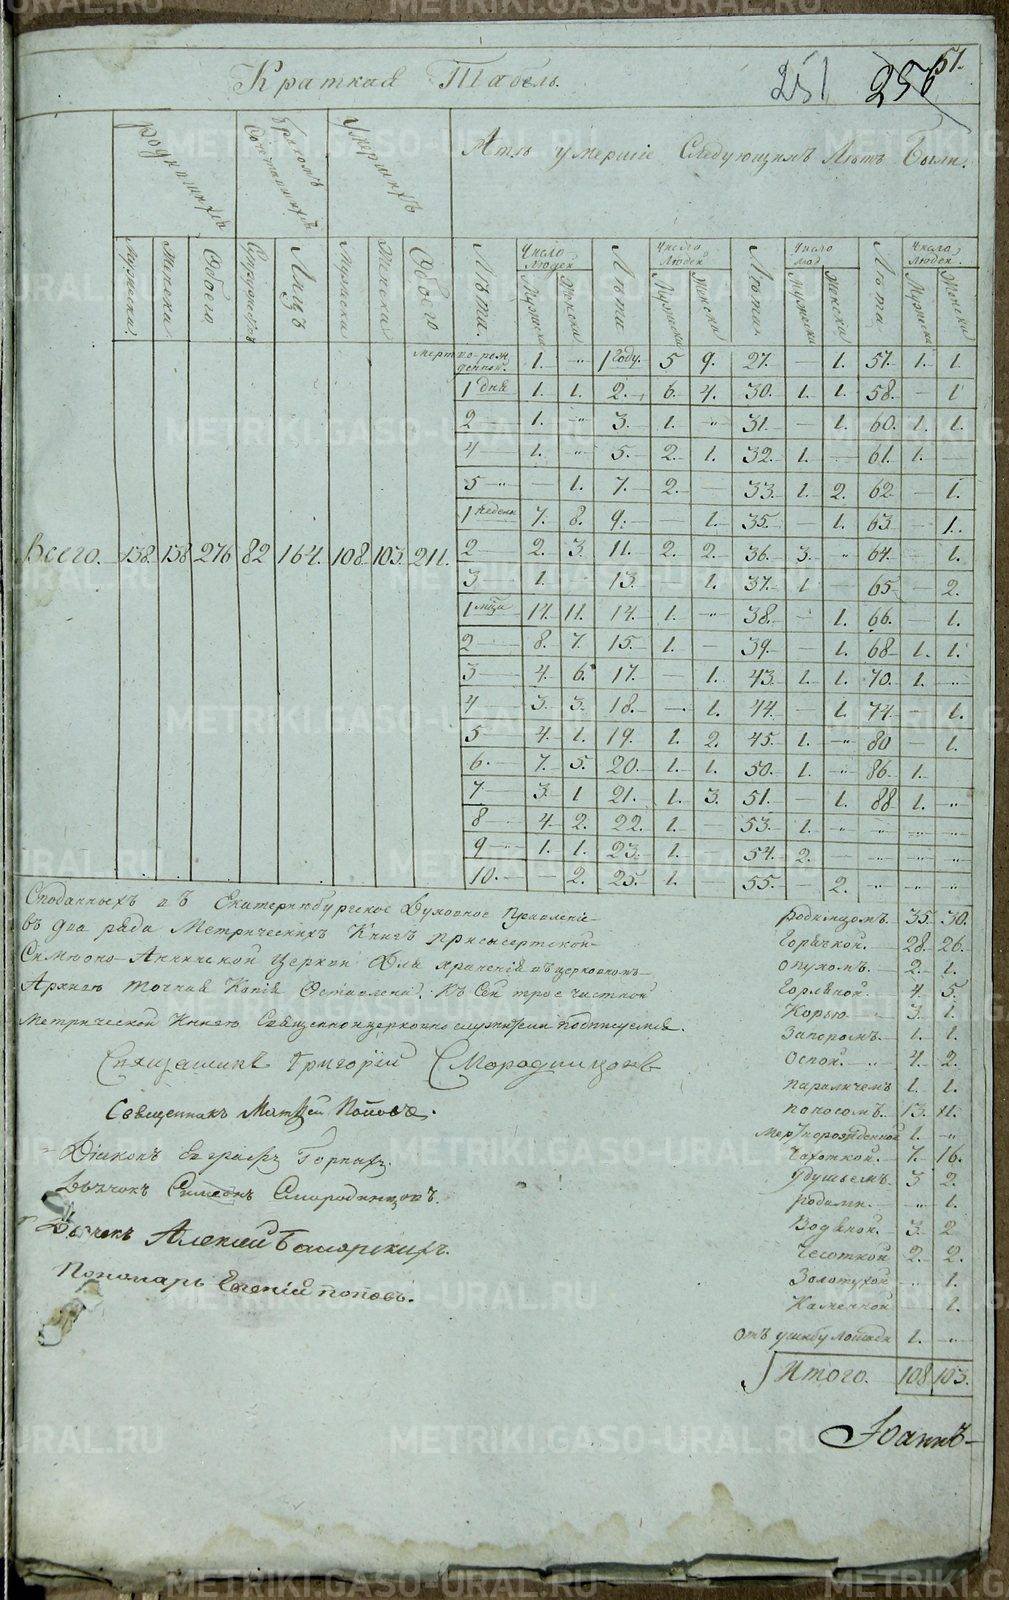 51.
Краткая Табель.
251 256
родившихся
бракомъ Сочетавшихся
умершихъ
Атъ умершіе Следующихъ Летъ были.
Мужеска. Женска Обоего Супружествъ Лицъ Мужеска Женска Обоего
Лета. Число людей Лета Число людей Лета. Число люд Лета Число людей
Мужеска Женска Мужеска Женска Мужеска Женска Мужеска Женска
мертворож денной. 1. " 1 Году. 5 9. 27. — 1. 57. 1. 1.
1 дня 1. 1. 2. 6. 4. 30. 1. 1. 58. — 1
2 1. " 3. 1. " 31. — 1. 60. 1. 1.
4 1. " 5. 2. 1. 32. 1. — 61. 1. —
5 " — 1. 7. 2. — 33. 1. 2. 62 — 1.
1 недели 7. 8. 9. — 1. 35. — 1. 63 — 1.
Всего. 138. 138 276 82 164. 108. 103. 211.
2 2. 3. 11. 2. 2. 36. 3. " 64. — 1.
3 1. — 13. 1. 37. 1 — 65 — 2.
1 мца 17. 11. 14. 1. " 38. — 1. 66. — 1.
2 8. 7. 15. 1. — 39. — 1. 68 1. 1.
3 4. 6. 17. — 1. 43. 1. 1. 70. 1. "
4 3. 3. 18. — 1. 44. — 1. 74. — 1.
5 4. 1. 19. 1. 2. 45. 1. " 80 — 1.
6. 7. 5. 20. 1. 1. 50. 1. " 86. 1.
7 3. 1 21. 1. 3. 51. — 1. 88 1. "
8 4. 2. 22. 1. — 53. 1. " " " "
9 1. 1. 23. 1. — 54. 2. — " " "
10. — 2. 25. 1. — 55. — 2. " " "
Споданныхъ въ Екатеринбургское Духовное Правленіе
въ два ряда Метрическихъ Книгъ при сысертской
Симеоно-Аннинской церкви Для храненія въ церковномъ
Архиве точная Копія Оставлена. Къ Сей трое частной
Метрической Книге Священноицерковно служители подписуемся.
Священникъ Григорій Смородинцовъ
Священникъ Матфей Поповъ.
Діаконъ Горныхъ.
Дьячокъ Симеонъ Смородинцовъ.
Дьячекъ Алексей Боярскихъ.
Пономарь Евгеній поповъ.
родимцомъ. 35. 30.
Горячкой. 28. 26.
опухомъ. 2. 1.
Горляной. 4. 5.
Корью. 3. 1.
Запоромъ. 1. 1.
Оспой. 4. 2.
параличемъ 1. 1.
поносомъ. 13. 11.
Мертворожденной 1. "
Чахоткой. 7. 16.
удушьемъ. 3 2.
родами. " 1.
Водяной. 3. 2
Чесоткой 2. 2.
Золотухой " 1.
Каменной 1.
отъ ушибу лошади 1. "
Итого. 108 103.
Іоаннъ
METRIKI.GASO-URAL.RU